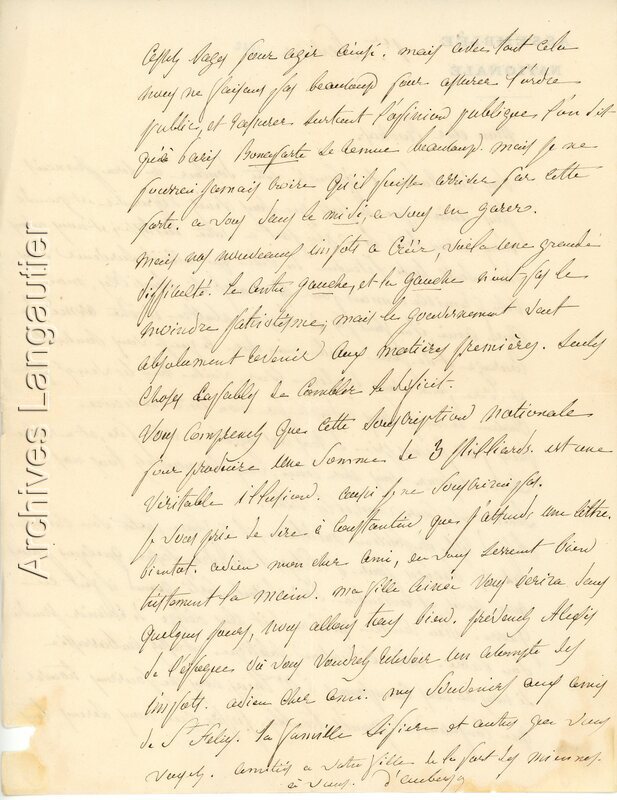 assez sages pour agir ainsi. mais avec tout cela
nous ne faisons pas beaucoup pour assurer l'ordre
public, et rassurer surtout l'opinion publique. l'on dit
qu'à Paris Bonaparte se remue beaucoup. mais je ne
pourrai jamais croire qu'il puisse arriver par cette
porte. a vous dans le midi, a vous en garer.
Mais nos nouveaux impots a créér, voila une grande
difficulté. le centre gauche, et la gauche n'ont pas le
moindre patriotisme, mais le gouvernement veut
absolument revenir aux matieres premières. Seules
choses capables de combler le deficit.
Vous comprenez que cette souscription nationale
pour produire une somme de 3 Milliards. est une
véritable illusion. aussi je ne souscrirai pas.
je vous prie de dire à Constantin, que j'attends une lettre.
bientot. adieu mon cher ami, en vous serrant bien
tristement la main. ma fille ainée vous écrira dans
quelques jours, nous allons tous bien. prévenez Alexis
de l'époque où vous voudrez recevoir un acompte des
impots. adieu cher ami. mes souvenirs aux amis
de St Felix. la famille et autres que vous
voyez. amitiés a votre fille de la part des miennes.
à vous. d'auberjo
Archives Langautier
ASSEMBLÉE
NATIONALE